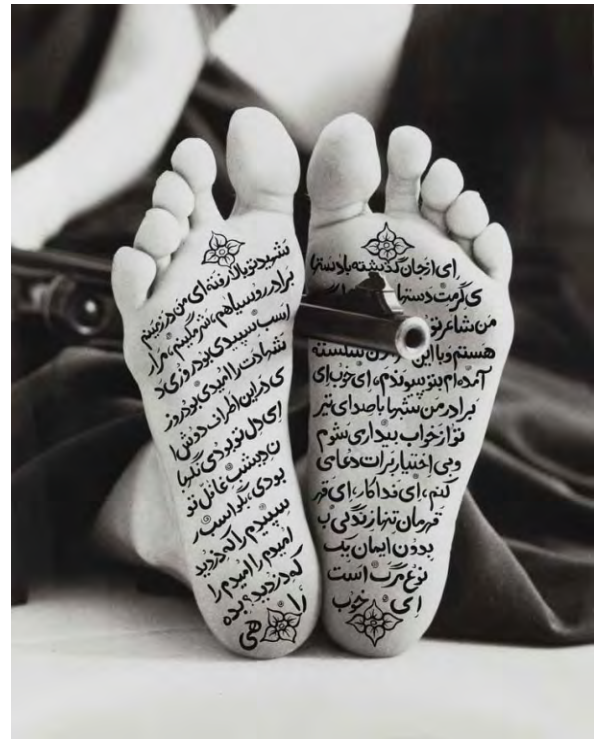 ای ازجان گذشته با دستها
ی گرمت دستها
من شاعر تو
هستم و با این شکسته
آمده ام بتو بپیوندم، ای خوب ای
برادر من شبها با صدای تیر
تو از خواب بیدار می شوم
و بی اختیار برات دعا می
کنم، ای فداکار، ای قهر
قهرمان تنها زندگی ب
بدون ایمان یک
نوع مرگ است
ای خوب
شهید تو بالا رفته ای من در زمینم
برادر رو سیاهم، شرمگینم، مرا
است سپیدی بود روزی د
شهادت را امیدی بود روز
ی در این اطراف دوش ا
ای دل تو بودی نگها
ن دیشب غافل تو
بودی، است ر
سپیدم را که دزدید
امیدم را امیدم را
که دزدید؟ بده
را هی